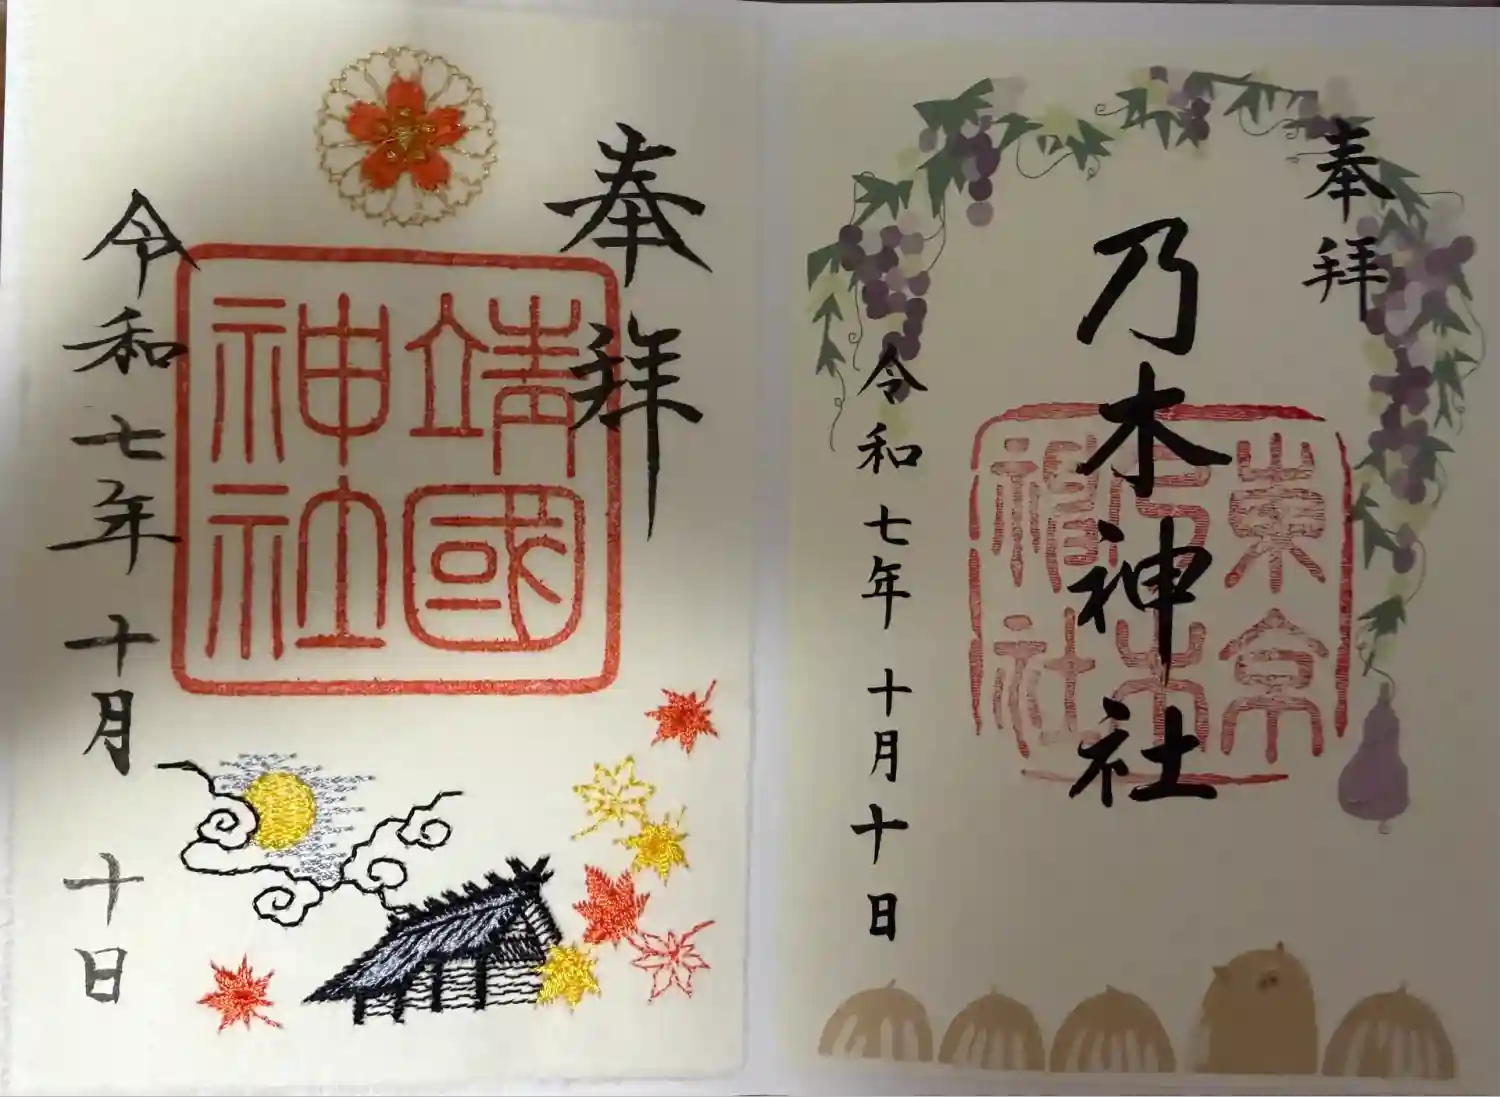 奉拜
靖國
神社
令和七年十月十日
奉拝
乃木神社
東京
乃木
神社
令和七年十月十日